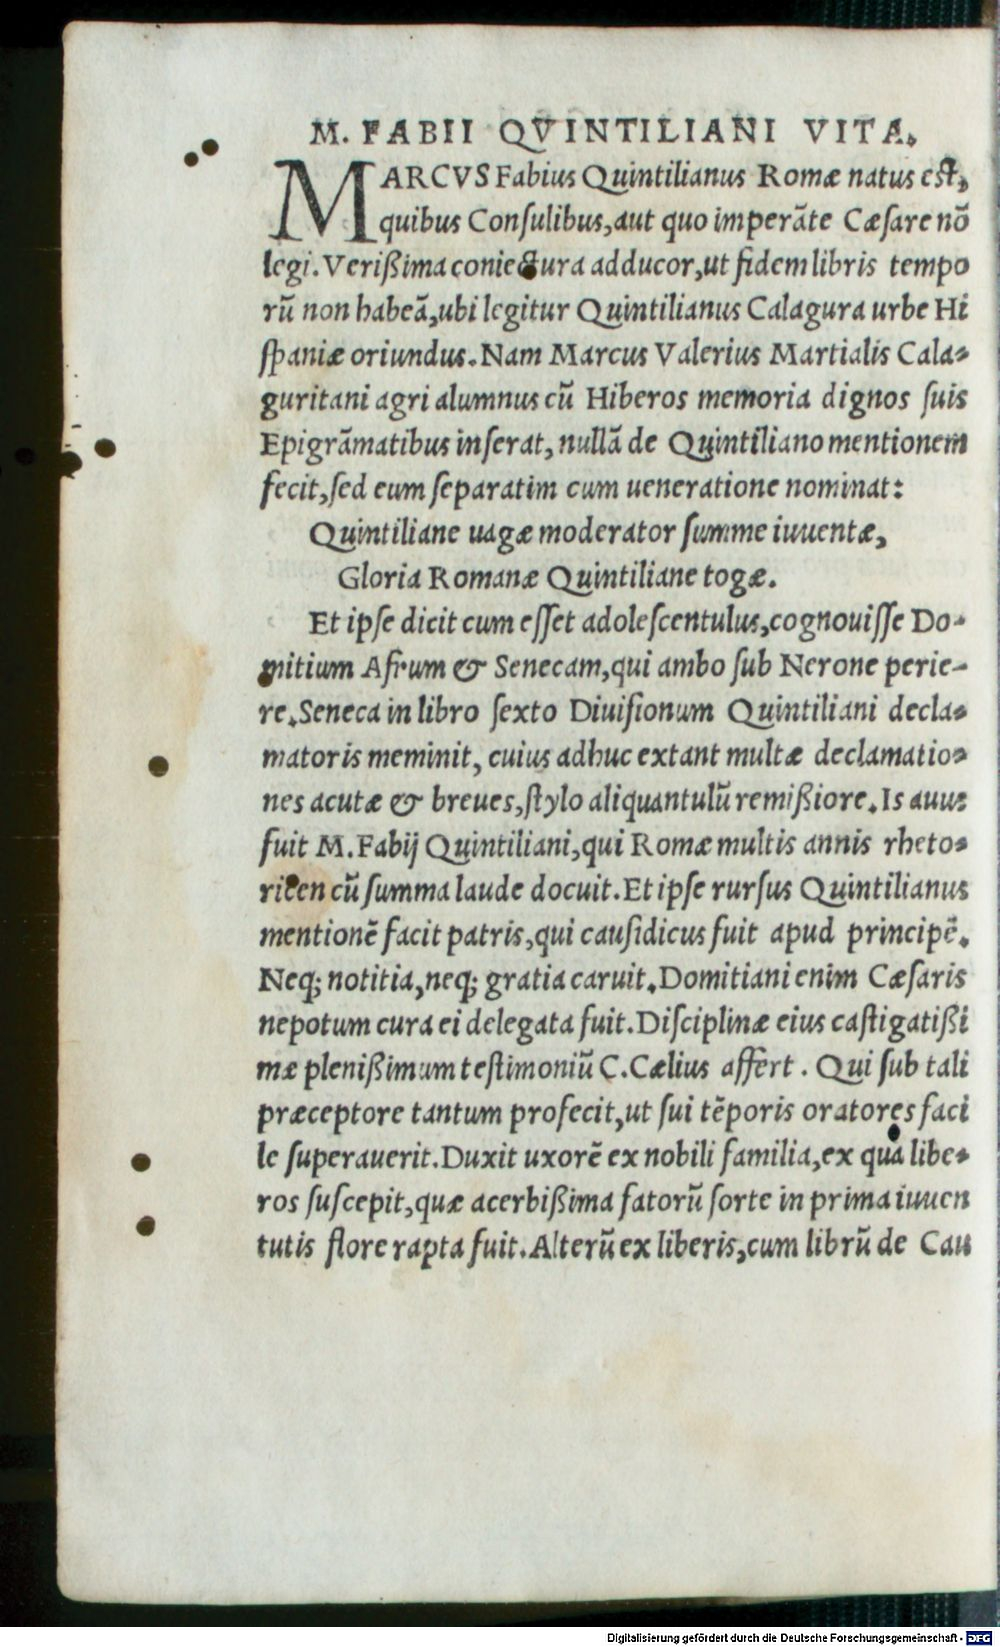 M. FABII QVINTILIANI VITA.
MARCVS Fabius Quintilianus Romæ natus est,
quibus Consulibus, aut quo imperāte Cæsare nō
legi. Verißima coniectura adducor, ut fidem libris tempo
rū non habeā, ubi legitur Quintilianus Calagura urbe Hi
spaniæ oriundus. Nam Marcus Valerius Martialis Cala-
guritani agri alumnus cū Hiberos memoria dignos suis
Epigrāmatibus inserat, nullā de Quintiliano mentionem
fecit, sed eum separatim cum ueneratione nominat:
Quintiliane uagæ moderator summe iuuentæ,
Gloria Romanæ Quintiliane togæ.
Et ipse dicit cum esset adolescentulus, cognouisse Do-
mitium Afrum & Senecam, qui ambo sub Nerone perie-
re. Seneca in libro sexto Diuisionum Quintiliani decla-
matoris meminit, cuius adhuc extant multæ declamatio-
nes acutæ & breues, stylo aliquantulū remißiore. Is auus
fuit M. Fabij Quintiliani, qui Romæ multis annis rheto-
ricen cū summa laude docuit. Et ipse rursus Quintilianus
mentionē facit patris, qui causidicus fuit apud principē.
Neq; notitia, neq; gratia caruit. Domitiani enim Cæsaris
nepotum cura ei delegata fuit. Disciplinæ eius castigatißi
mæ plenißimum testimoniū C. Cælius affert. Qui sub tali
præceptore tantum profecit, ut sui tēporis oratores faci
le superauerit. Duxit uxorē ex nobili familia, ex qua libe-
ros suscepit, quæ acerbißima fatorū sorte in prima iuuen
tutis flore rapta fuit. Alterū ex liberis, cum librū de Cau
Digitalisierung gefördert durch die Deutsche Forschungsgemeinschaft - DFG